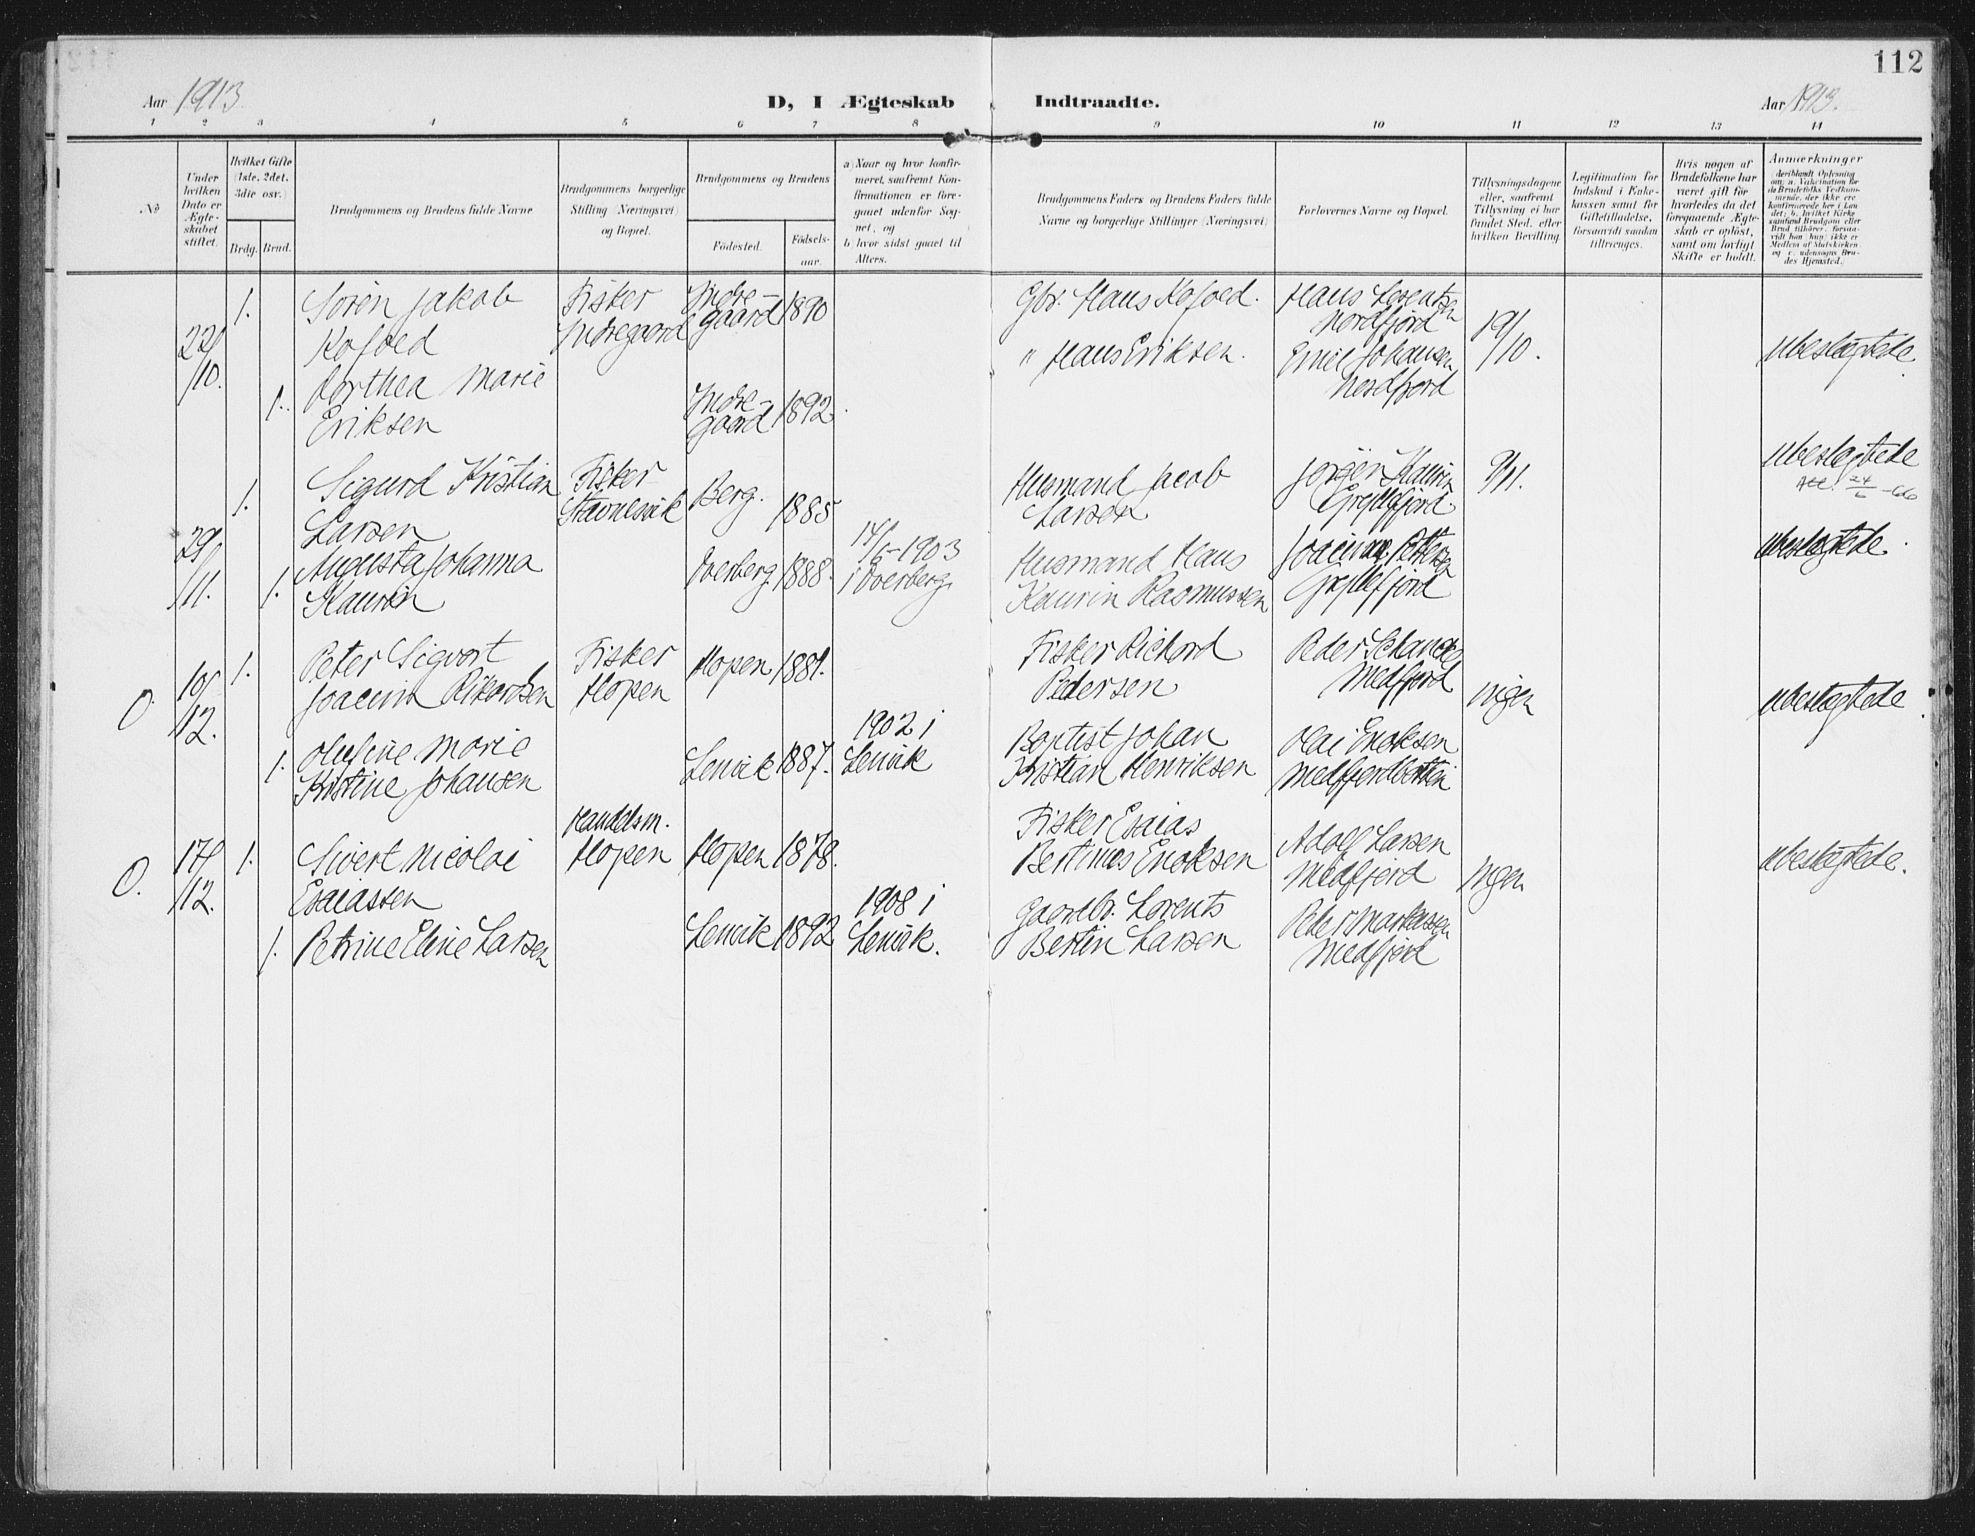 112
Aar 1913
D, I Ægteskab Indtraadte.
Aar 1913.
1 2 3 4 5 6 7 8 9 10 11 12 13 14
No
Under hvilken Dato er Ægteskabet stiftet.
Hvilket Gifte (1ste, 2det, 3die osv.)
Brdg. Brud.
Brudgommens og Brudens fulde Navne
Brudgommens borgerlige Stilling (Næringsvei) og Bopæl.
Brudgommens og Brudens
Fødested.
Fødselsaar.
a) Naar og hvor konfirmeret, saafremt Konfirmationen er foregaaet udenfor Sognet, og
b) hvor sidst gaaet til Alters.
Brudgommens Faders og Brudens Faders fulde Navne og borgerlige Stillinger (Næringsvei)
Forlovernes Navne og Bopæl.
Tillysningsdagene eller, saafremt Tillysning ei har fundet Sted, efter hvilken Bevilling.
Legitimation for Indskud i Enkekassen samt for Giftetilladelse, forsaavidt saadan tiltrænges.
Hvis nogen af Brudefolkene har været gift før hvorledes da det foregaaende Ægteskab er opløst, samt om lovligt Skifte er holdt.
Anmærkninger
(deriblandt Oplysning om: a. Vakcination for de Brudefolks Vedkommende, der ikke ere konfirmerede her i Landet; b. hvilket Kirkesamfund Brudgom eller Brud tilhører, forsaavidt han (hun) ikke er Medlem af Statskirken, og c. udensogns Brudes Hjemsted.)
22/10.
1.
Søren Jakob
Kofoed
Fisker
Indregaard
Indre-
gaard
1890
Gbr. Hans Kofoed.
Hans Lorentzen
Nordfjord
19/10.
1.
Dorthea Marie
Eriksen
Indre-
gaard
1892.
" Hans Eriksen.
Emil Johansen
Nordfjord
ubeslægtede.
29/11.
1.
Sigurd Kristian
Larsen
Fisker
Stavnelsvik
Berg.
1885
Husmand Jacob
Larsen
Jørgen Kaurin
Gryllefjord
9/11.
ubeslægtede
Att. 24/6 -66
1.
Augusta Johanna
Kaurin
Torberg.
1888.
14/6-1903
i Torberg.
Husmand Hans
Kaurin Rasmussen
Joacim Pettersen
Gryllefjord
ubeslægtede.
O.
10/12.
1.
Peter Sigvart
Joacim Rikardsen
Fisker
Hopen
Hopen
1881.
Fisker Richard
Pedersen
Peder Schancke
Medfjord
ingen
ubeslægtede.
1.
Olufine Marie
Kristine Johansen
Lenvik
1887.
1902 i
Lenvik
Baptist Johan
Kristian Henriksen
Olai Enoksen
Medfjordbotten
O.
17/12.
1.
Sivert Nicolai
Esaiassen
Handelsm.
Hopen
Hopen
1878.
Fisker Esaias
Bertinus Enoksen
Adolf Larsen
Medfjord
ingen
ubeslægtede.
1.
Petrine Eline Larsen
Lenvik
1892
1908 i
Lenvik.
Gaardbr. Lorents
Bertin Larsen
Peder Markussen
Medfjord